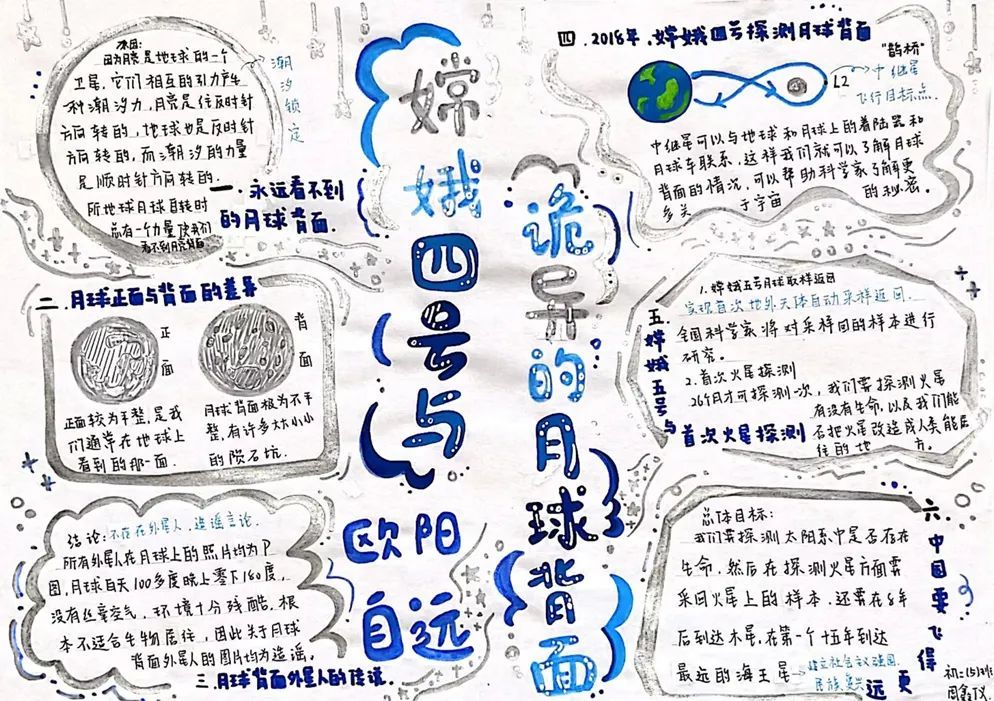 嫦娥四号与欧阳自远
诡异的月球背面
一、永远看不到
的月球背面.
原因:
因为月亮是地球的一个
卫星,它们相互的引力产生
种潮汐力,月亮是往反时针
方向转的,地球也是反时针
方向转的,而潮汐的力量
是顺时针方向转的.
所地球月球自转时
总有一个力量使我们
看不到月亮背面
潮汐锁定
二.月球正面与背面的差异
正面
背面
正面较为平整,是我
们通常在地球上
看到的那一面.
月球背面极为不平
整,有许多大小小
的陨石坑.
结论:不存在外星人,造谣言论.
所有外星人在月球上的照片均为P
图,月球白天100多度晚上零下180度,
没有丝毫空气,环境十分残酷,根
本不适合生物居住,因此关于月球
背面外星人的图片均为造谣。
三.月球背面外星人的传说.
四.2018年,嫦娥四号探测月球背面
"鹊桥"
中继星
飞行目标点.
L2
中继星可以与地球和月球上的着陆器和
月球车联系,这样我们就可以了解月球
背面的情况,可以帮助科学家了解更
多关于宇宙的秘密。
五.嫦娥五号与首次火星探测
1.嫦娥五号月球取样返回
实现首次地外天体自动采样返回.
全国科学家将对采样回的样本进行
研究。
2.首次火星探测
26个月才可探测一次,我们要探测火星
有没有生命,以及我们能
否把火星改造成人类能居
住的地方。
六.中国要飞得更远
总体目标:
我们要探测太阳系中是否存在
生命,然后在探测火星方面要
采回火星上的样本,还要在8年
后到达木星,在第一个十五年到达
最远的海王星→建立社会主义强国.
民族复兴
初二(5)班